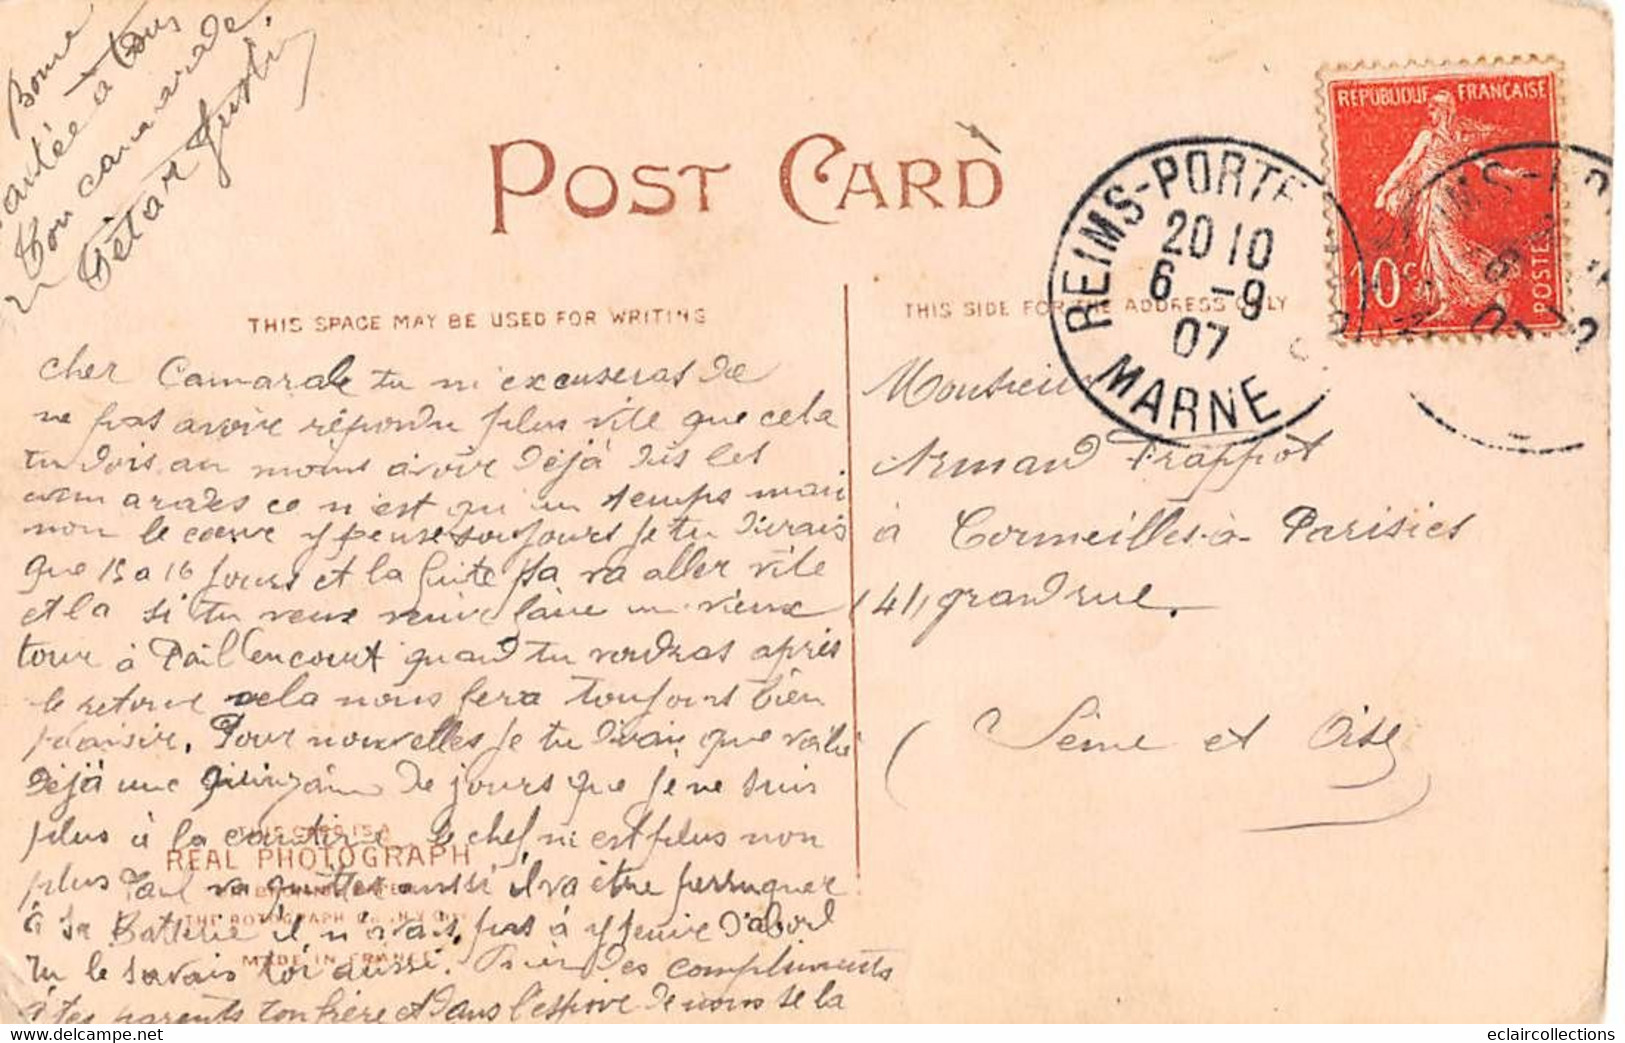 Bonne
santée à tous
Ton camarade
Tétar
POST CARD
THIS SPACE MAY BE USED FOR WRITING
THIS SIDE FOR THE ADDRESS ONLY
REPUBLIQUE FRANÇAISE
10c
POSTES
REIMS-PORTE
20 10
6 -9
07
MARNE
cher Camarade tu m'excuseras de
ne pas avoir répondu plus vite que cela
tu dois au moins avoir déjà dis les
camarades ce n'est qu'un temps mais
non le cœur y pense toujours je tu dirais
que 15 a 16 jours et la fuite va aller vite
et la si tu veux venir faire un vieux
tour à Paillencourt quand tu voudras après
le retour cela nous fera toujours bien
plaisir. Pour nouvelles je tu dirai que voila
déjà une quinzaine de jours que je ne suis
plus à la cantine le chef n'est plus non
plus Paul va quitter aussi il va être perruquer
à sa Batterie il n'avais pas à y venir d'abord
Tu le savais toi aussi. des compliments
à tes parents ton frère et dans l'espoire de nous la
THIS CARD IS A
REAL PHOTOGRAPH
THE ROTOGRAPH Co. N.Y.
MADE IN FRANCE
Monsieur
Armand Frappot
à Cormeilles-à-Parisies
41, grand rue.
(Seine et Oise)
eclaircollections